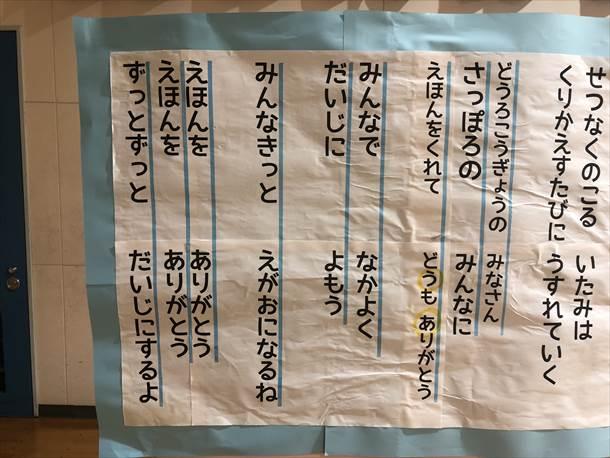 せつなくのこる いたみは
くりかえすたびに うすれていく
どうろこうぎょうの みなさん
さっぽろの みんなに
えほんをくれて どうも ありがとう
みんなで なかよく
だいじに よもう
みんなきっと えがおになるね
えほんを ありがとう
えほんを ありがとう
ずっとずっと だいじにするよ